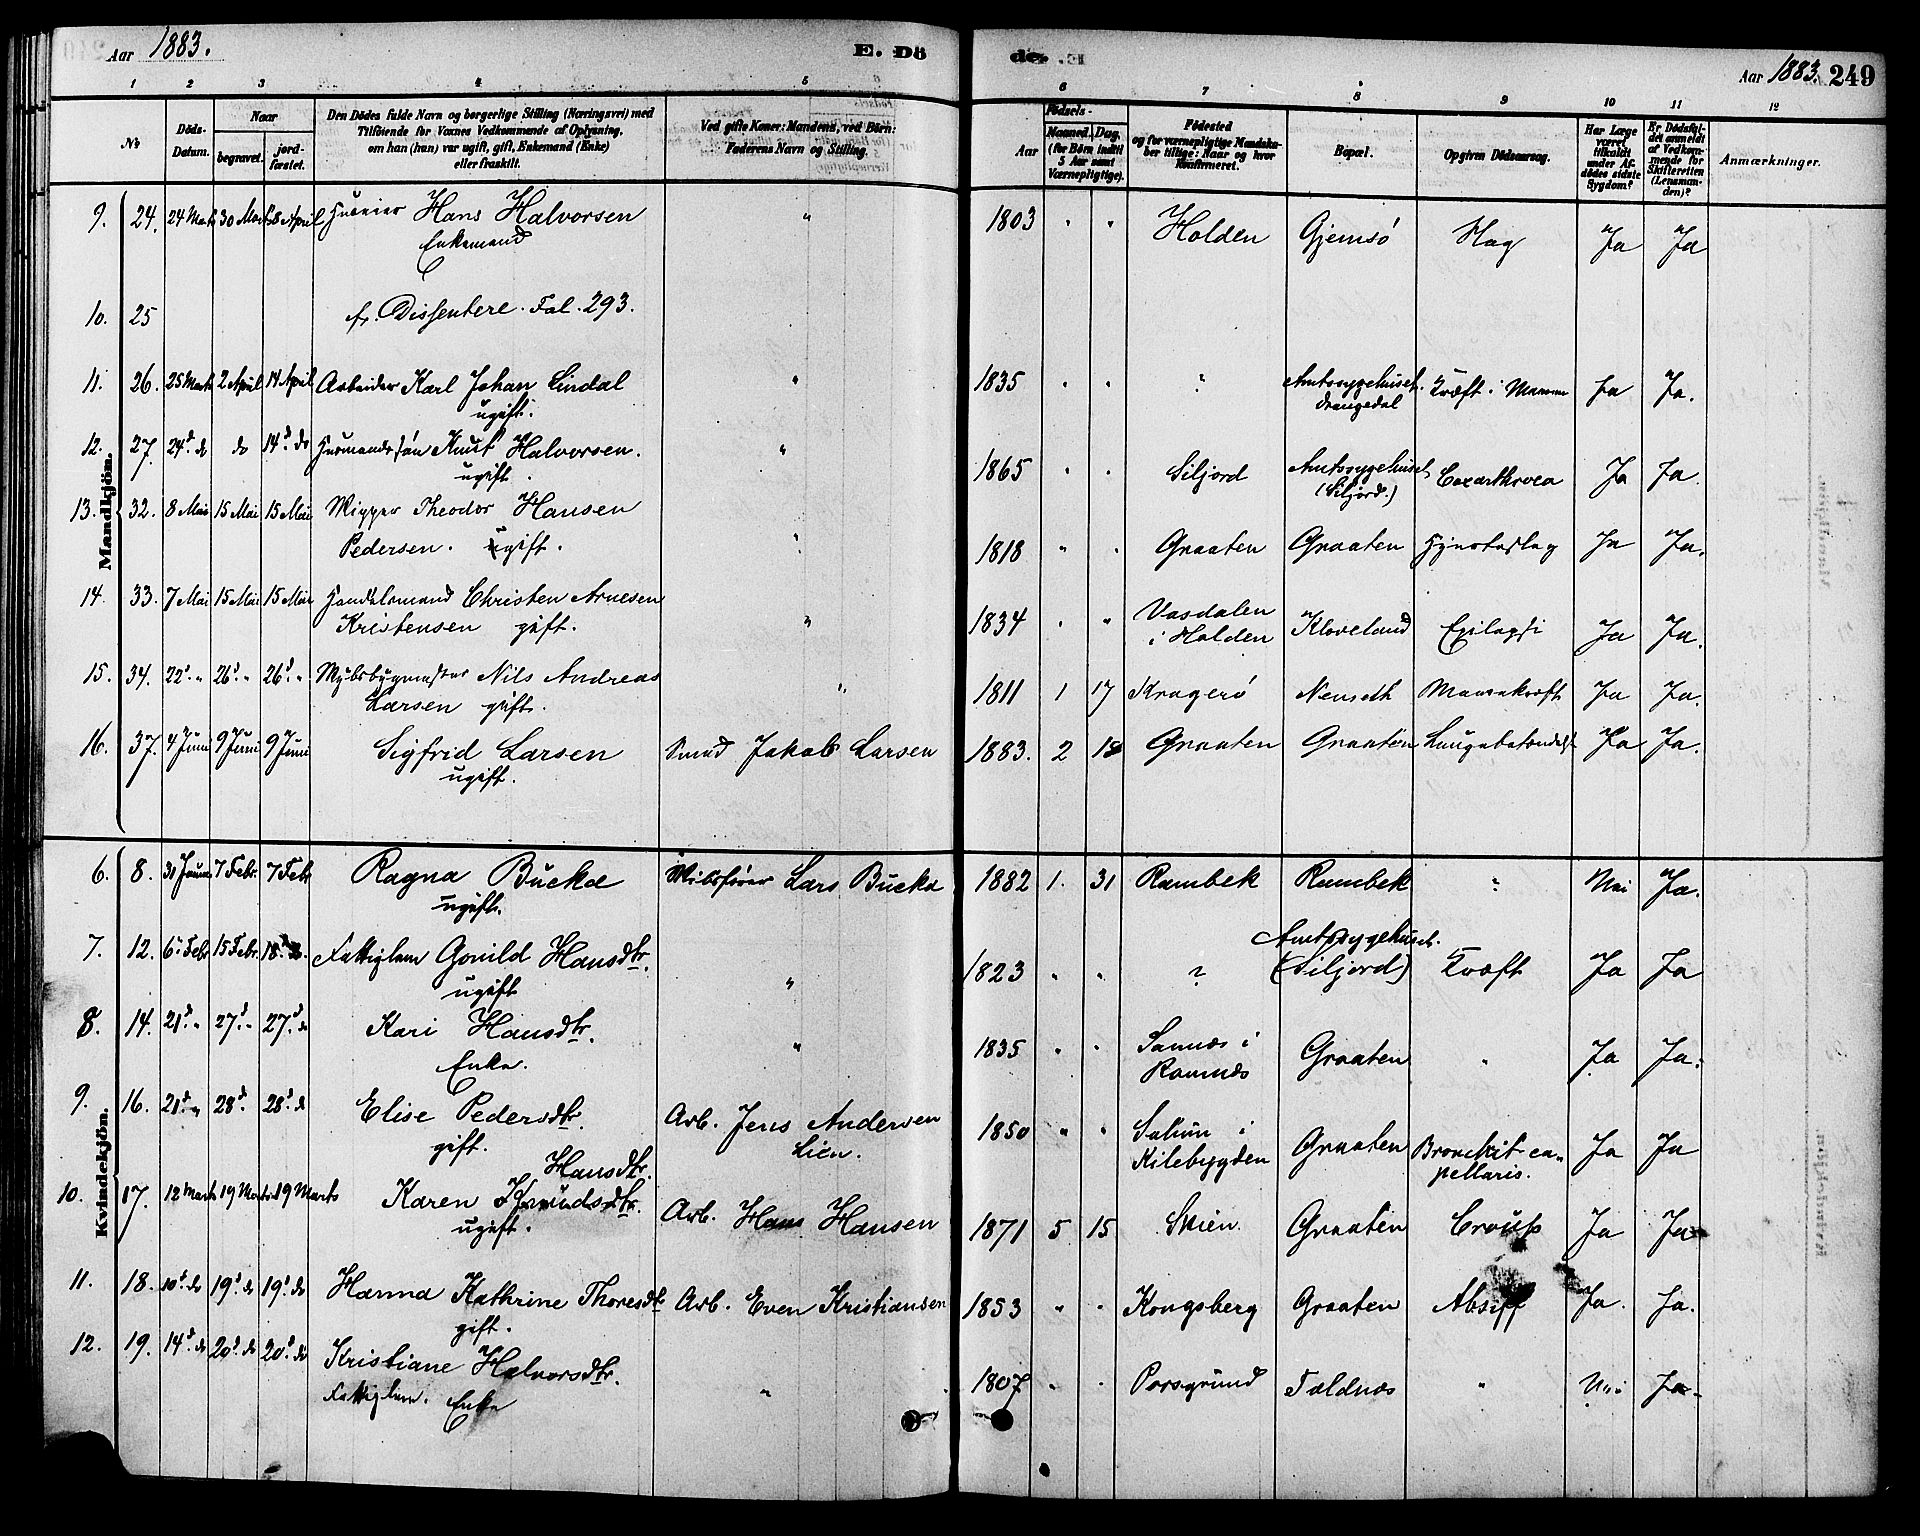 Aar 1883.
E. Dö
de. E
Aar 1883. 249
1 2 3 4 5 6 7 8 9 10 11 12
No
Döds-
Datum.
Naar
begravet.
jord-
fæstet.
Den Dödes fulde Navn og borgerlige Stilling (Næringsvei) med
Tilföiende for Voxnes Vedkommende af Oplysning,
om han (hun) var ugift, gift, Enkemand (Enke)
eller fraskilt.
Ved gifte Koner: Mandens, ved Börn:
Faderens Navn og Stilling.
Födsels-
Aar
Maaned. Dag.
(for Börn indtil
5 Aar samt
Værnepligtige).
Födested
og for værnepligtige Mandska-
ber tillige: Naar og hvor
konfirmeret.
Bopæl.
Opgiven Dödsaarsag.
Har Læge
været
tilkaldt
under Af-
dödes sidste
Sygdom?
Er Dödsfal-
det anmeldt
af Vedkom-
mende for
Skifteretten
(Lensman-
den)?
Anmærkninger.
Mandkjön.
9. 24. 24 Marts 30 Marts 8 April Huseier Hans Halvorsen " 1803 " " Holden Gjemsö Slag Ja Ja
Enkemand
10. 25 fr. Dissentere. Fol. 293.
11. 26. 25 Marts 2 April 14 April Arbeider Karl Johan Lindal " 1835 " " ? Amtssygehuset. Kræft i Maven Ja Ja.
ugift. Drangedal
12. 27. 24d do do 14d. do Husmandssön Knut Halvorsen. " 1865 " " Siljord Amtssygehuset Coxarthroca Ja Ja.
ugift. (Siljord.)
13. 32. 8 Mai 15 Mai 15 Mai Theodor Hansen
Pedersen. ugift. " 1818 " " Graaten Graaten Hjerteslag Ja Ja.
14. 33. 7 Mai 15 Mai 15 Mai Handelsmand Christen Arnesen
Kristensen gift. " 1834 " " Vasdalen
i Holden Kloveland Epilepsi Ja Ja.
15. 34. 22d. " 26d. " 26d. " Nils Andreas
Larsen gift. " 1811 1 17 Kragerö Nenseth Mavekræft Ja Ja.
16. 37. 4 Juni 9 Juni 9 Juni Sigfrid Larsen Smed Jakob Larsen 1883. 2 18 Graaten Graaten Lungebetændelse Ja Ja.
ugift.
Kvindekjön.
6. 8. 31 Januar 7 Febr. 7 Febr Ragna Bucka Lars Bucka 1882 1. 31 Rambek Rambek " Nei Ja.
ugift.
7. 12. 6. Febr 15 Febr. 18d. do. Fattiglem Gonild Hansdtr. " 1823 " " ? Amtssygehuset.
(Siljord) Kræft Ja Ja
ugift
8. 14. 21d. " 27d. " 27d. do Kari Hansdtr. " 1835 " " Sannes i
Ramnes Graaten " Ja Ja.
Enke.
9. 16. 21d. " 28d. 28d. do Elise Pedersdtr. Arb. Jens Andersen
Lien. 1850 " " Solum i
Kilebygden Graaten Bronchit ca-
pellaris. Ja Ja
gift.
Hansdtr.
10. 17. 12 Marts 19 Marts 19 Marts Karen Knudsdtr. Arb. Hans Hansen 1871 5 15 Skien. Graaten Croup Ja Ja
ugift.
11. 18. 10d. do 19d. do 19d. do Hanna Kathrine Thoresdtr Arb. Even Kristiansen 1853 " " Kongsberg Graaten Ja. Ja.
gift.
12. 19. 14d. do 20d. do 20d. do Kristiane Halvorsdtr. " 1807 " " Porsgrund Foldnes " Nei Ja
Fattiglem. Enke